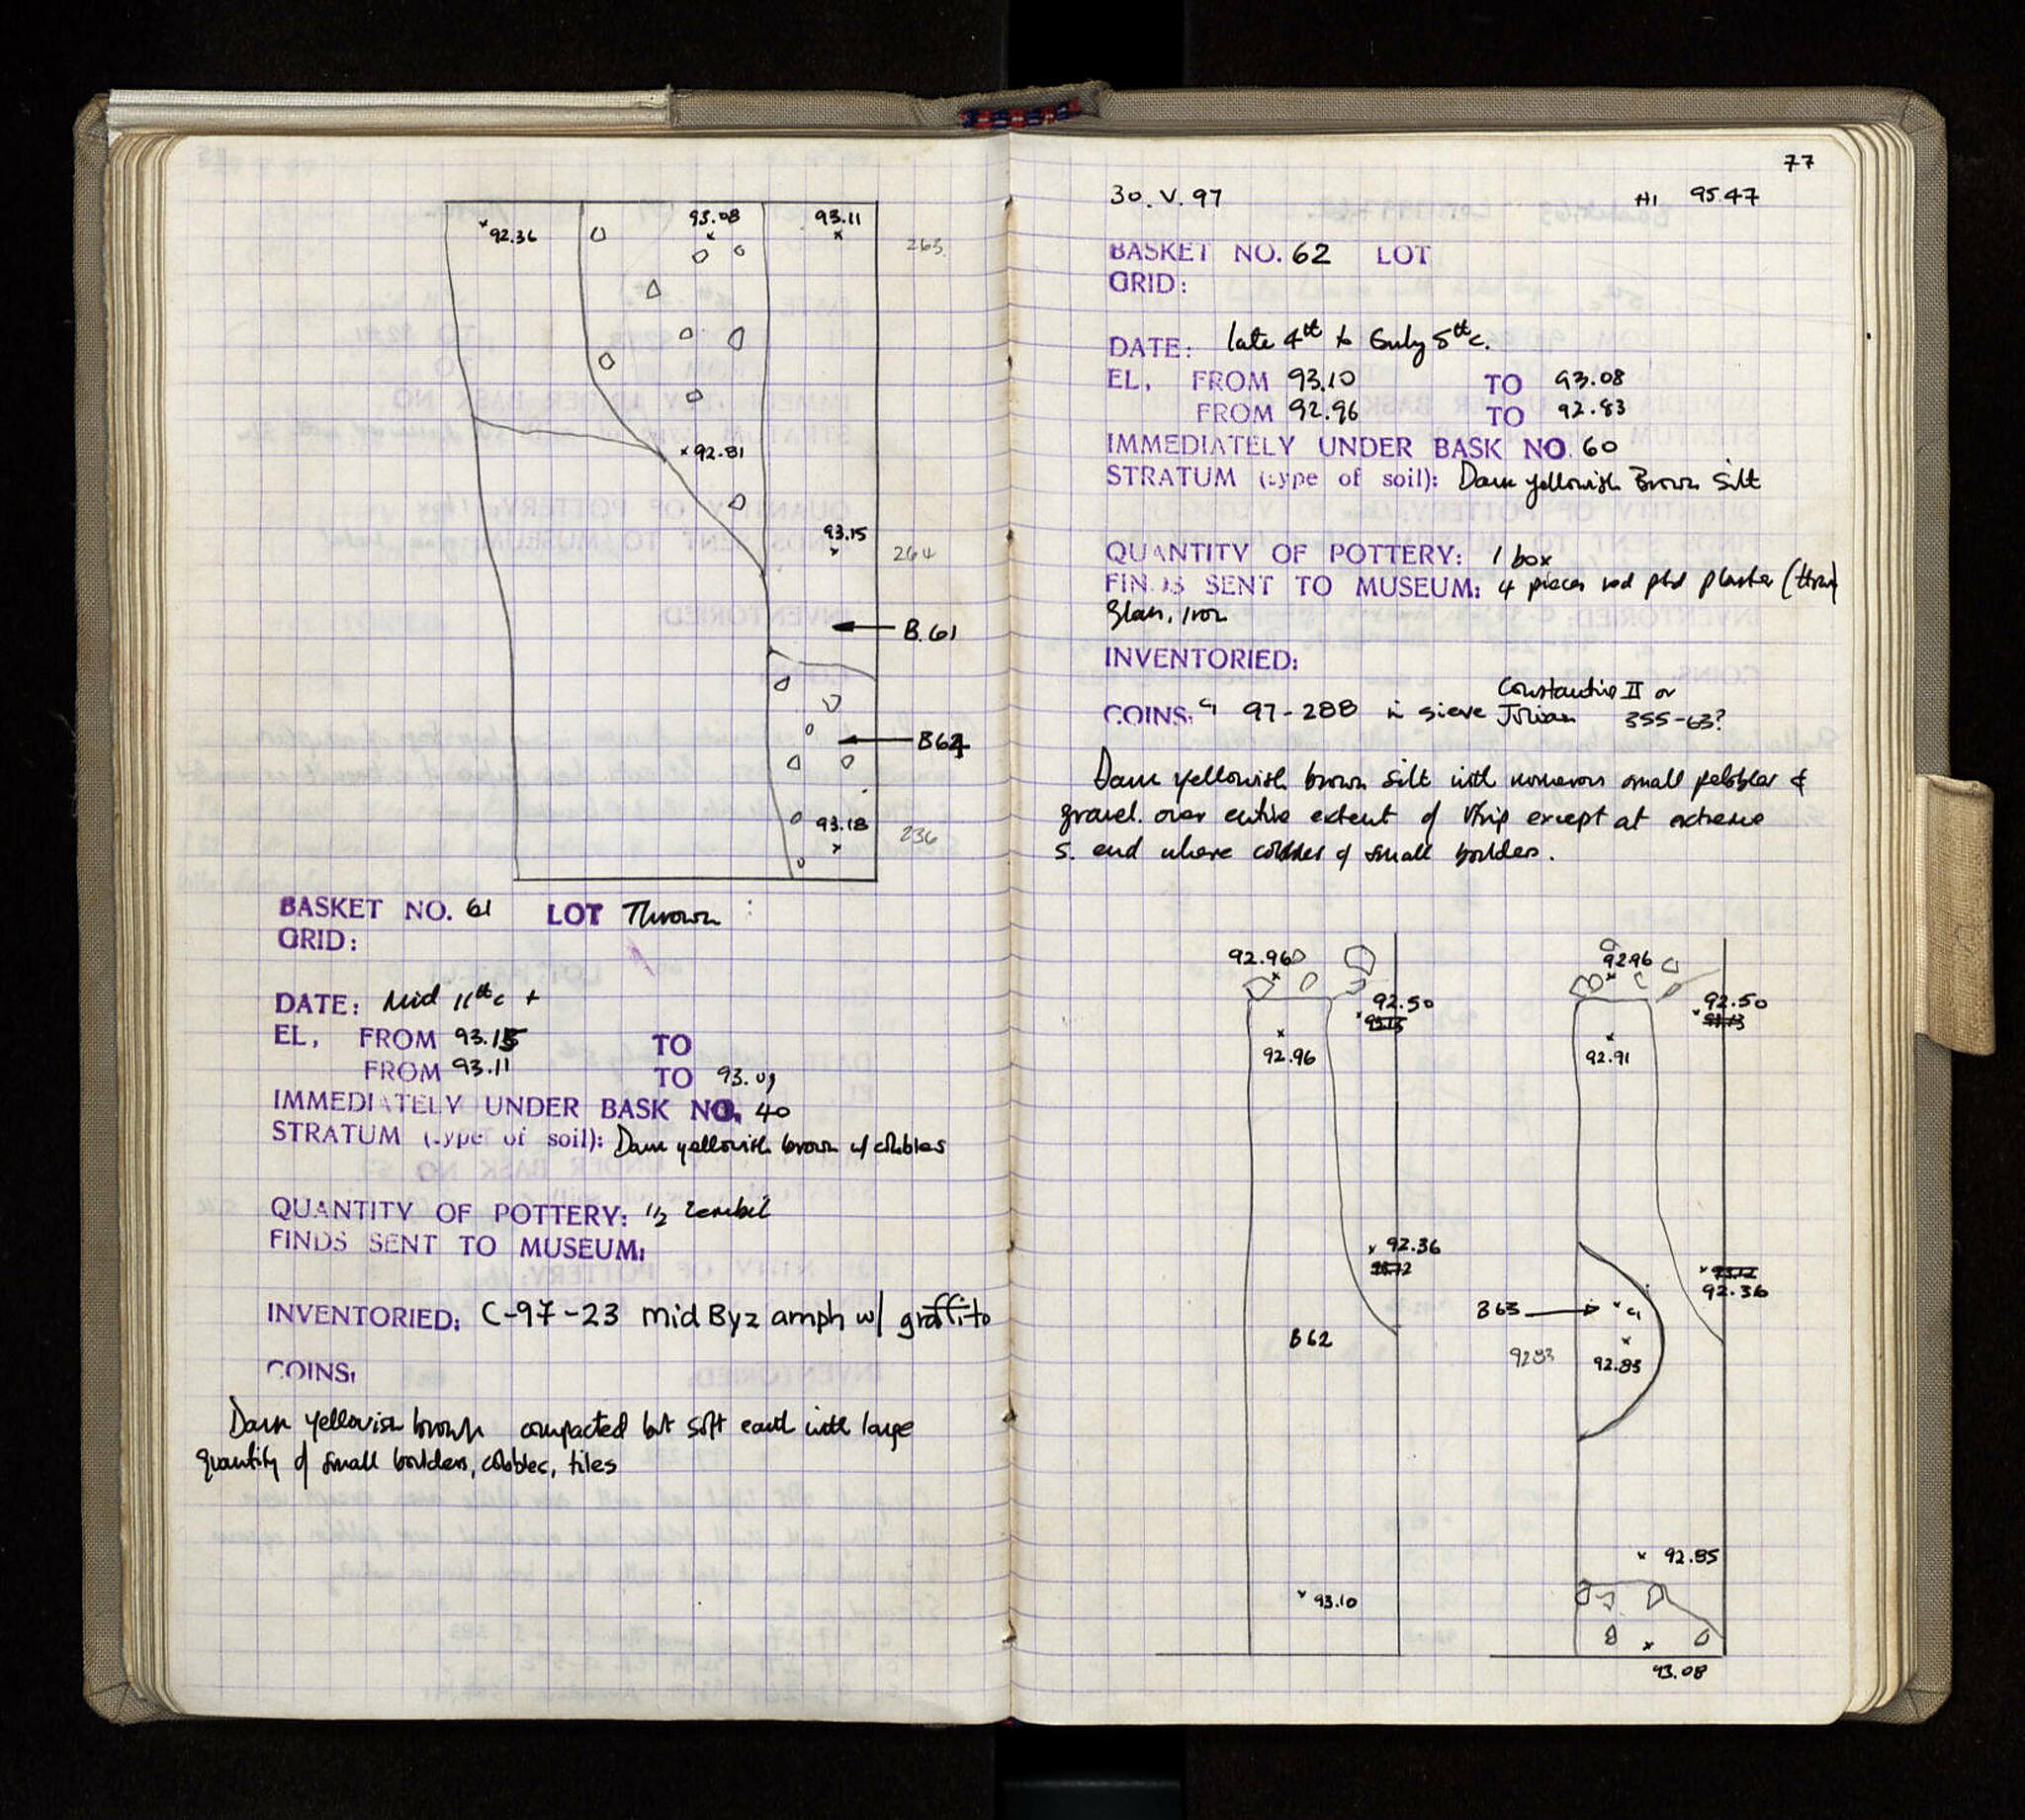 92.36
93.08
93.11
263
92.81
93.15
264
B.61
B64
93.18
236
BASKET NO. 61 LOT Thrown
GRID:
DATE: Mid 11th c +
EL, FROM 93.15 TO
FROM 93.11 TO 93.09
IMMEDIATELY UNDER BASK NO. 40
STRATUM (type of soil): Dark yellowish brown w/ cobbles
QUANTITY OF POTTERY: 1/2 zembil
FINDS SENT TO MUSEUM:
INVENTORIED: C-97-23 mid Byz amph w/ graffito
COINS:
Dark yellowish brown compacted but soft earth with large
quantity of small boulders, cobbles, tiles
77
30. V. 97 HI 95.47
BASKET NO. 62 LOT
GRID:
DATE: late 4th to Early 5th c.
EL, FROM 93.10 TO 93.08
FROM 92.96 TO 92.83
IMMEDIATELY UNDER BASK NO. 60
STRATUM (type of soil): Dark yellowish Brown Silt
QUANTITY OF POTTERY: 1 box
FINDS SENT TO MUSEUM: 4 pieces red ptd plaster
Glass, Iron
INVENTORIED:
Constantius II or
COINS: 97-288 in sieve Julian 355-63?
Dark yellowish brown silt with numerous small pebbles &
gravel. over entire extent of strip except at extreme
S. end where cobbles & small boulders.
92.96
92.50
92.96
92.36
B62
93.10
92.96
92.50
92.91
92.36
B63
92.85
92.85
93.08